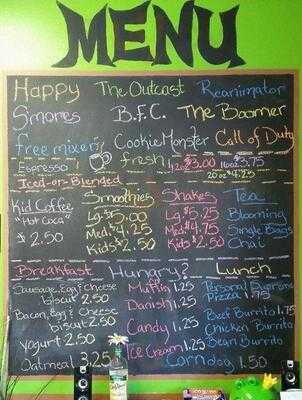 MENU
Happy The Outcast Reanimator
S'mores B.F.C. The Boomer
Free mixer! Cookie Monster Call of Duty
Espresso! fresh! 12oz $3.00 16oz $3.75
20oz $4.25
Iced-or-Blended
Kid Coffee
"Hot Coca"
$2.50
Smoothies
Lg. $5.00
Med. $4.25
Kids $2.50
Shakes
Lg. $5.25
Med. $4.75
Kids $2.50
Tea
Blooming
Single Bags
Chai
Breakfast
Sausage, Egg & Cheese
biscuit 2.50
Bacon, Egg & Cheese
biscuit 2.50
Yogurt 2.50
Oatmeal 3.25
Hungry?
Muffin 1.25
Danish 1.25
Candy 1.25
Ice Cream 1.25
Lunch
Personal Supreme
Pizza 1.75
Beef Burrito 1.75
Chicken Burrito
Bean Burrito
Corndog 1.50